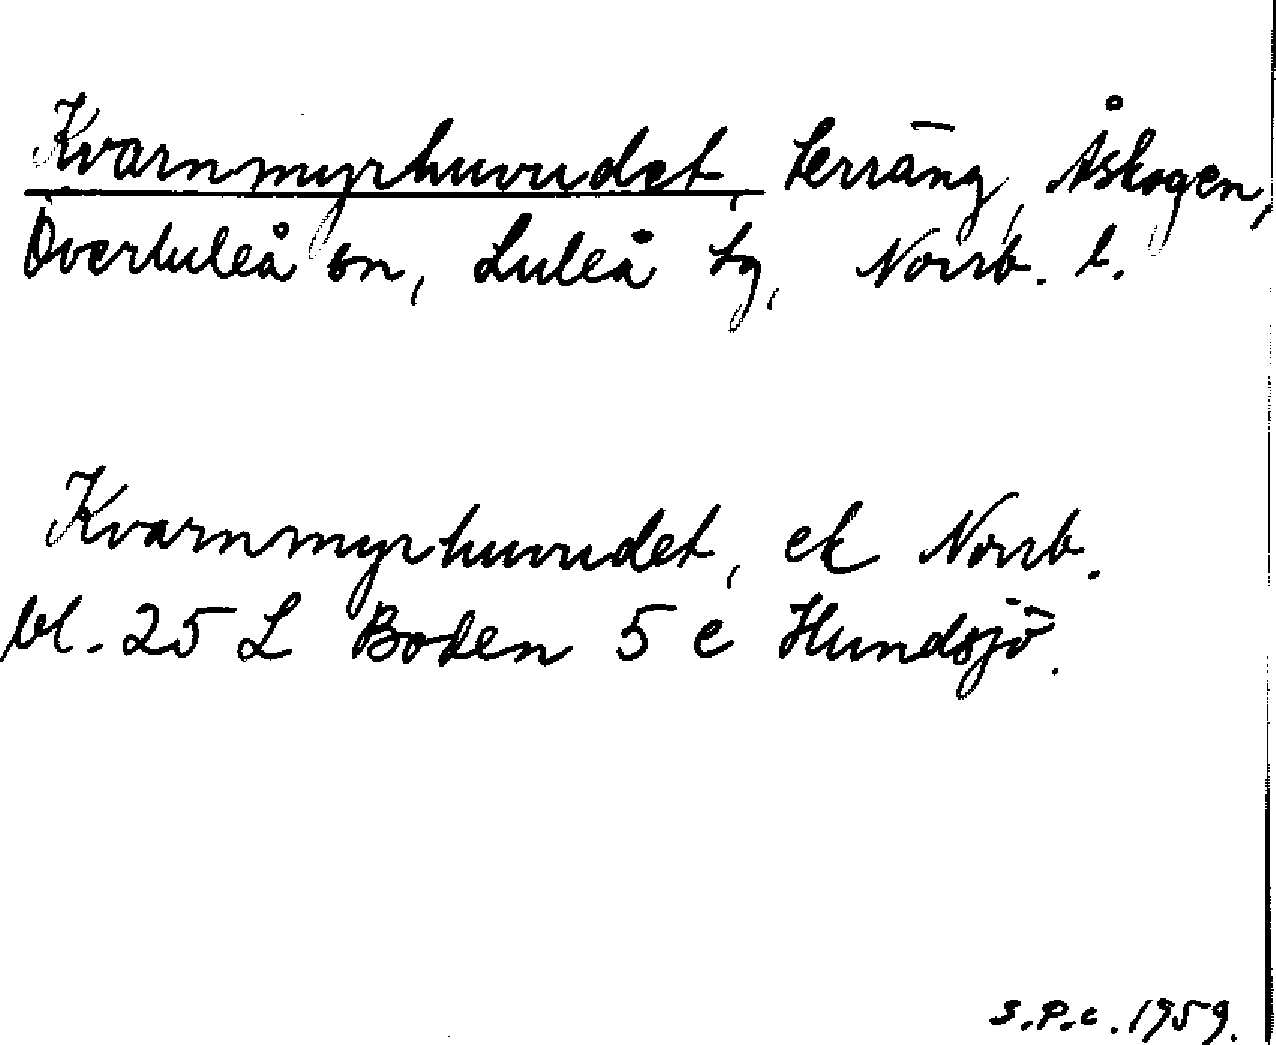 Kvarnmyrhuvudet, terräng, Åskogen,
Överluleå sn, Luleå tg, Norrb. l.
Kvarnmyrhuvudet, ek Norrb.
bl. 25 L Boden 5 c Hundsjö.
S.P.C. 1959.